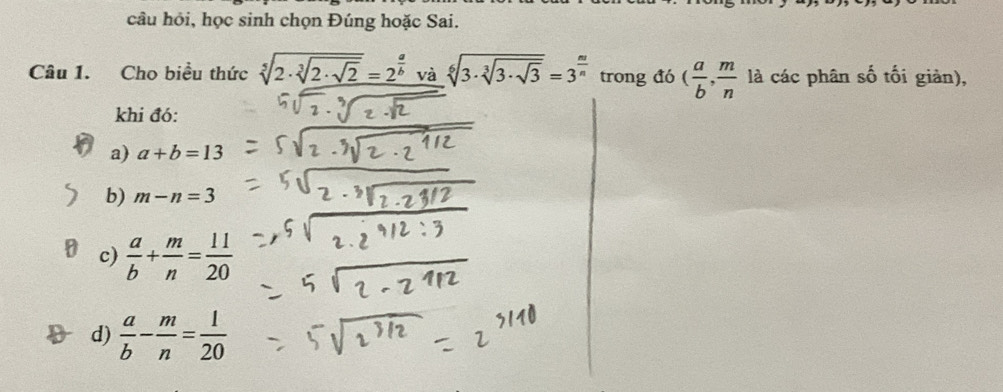 câu hỏi, học sinh chọn Đúng hoặc Sai.
Câu 1. Cho biểu thức \sqrt[5]{2\cdot\sqrt[3]{2\cdot\sqrt{2}}} = 2^{\frac{a}{b}} và \sqrt[6]{3\cdot\sqrt[3]{3\cdot\sqrt{3}}} = 3^{\frac{m}{n}} trong đó (\frac{a}{b}, \frac{m}{n} là các phân số tối giản),
khi đó:
5\sqrt{2 . 3\sqrt{2 . \sqrt{2}}}
a) a+b=13 = 5\sqrt{2 . 3\sqrt{2 . 2^{1/2}}}
S b) m-n=3 = 5\sqrt{2 . 3\sqrt{2 . 2^{3/2}}}
c) \frac{a}{b}+\frac{m}{n}=\frac{11}{20} = 5\sqrt{2 . 2^{3/2 : 3}}
= 5\sqrt{2 . 2^{1/2}}
Đ d) \frac{a}{b}-\frac{m}{n}=\frac{1}{20} = 5\sqrt{2^{3/2}} = 2^{3/10}